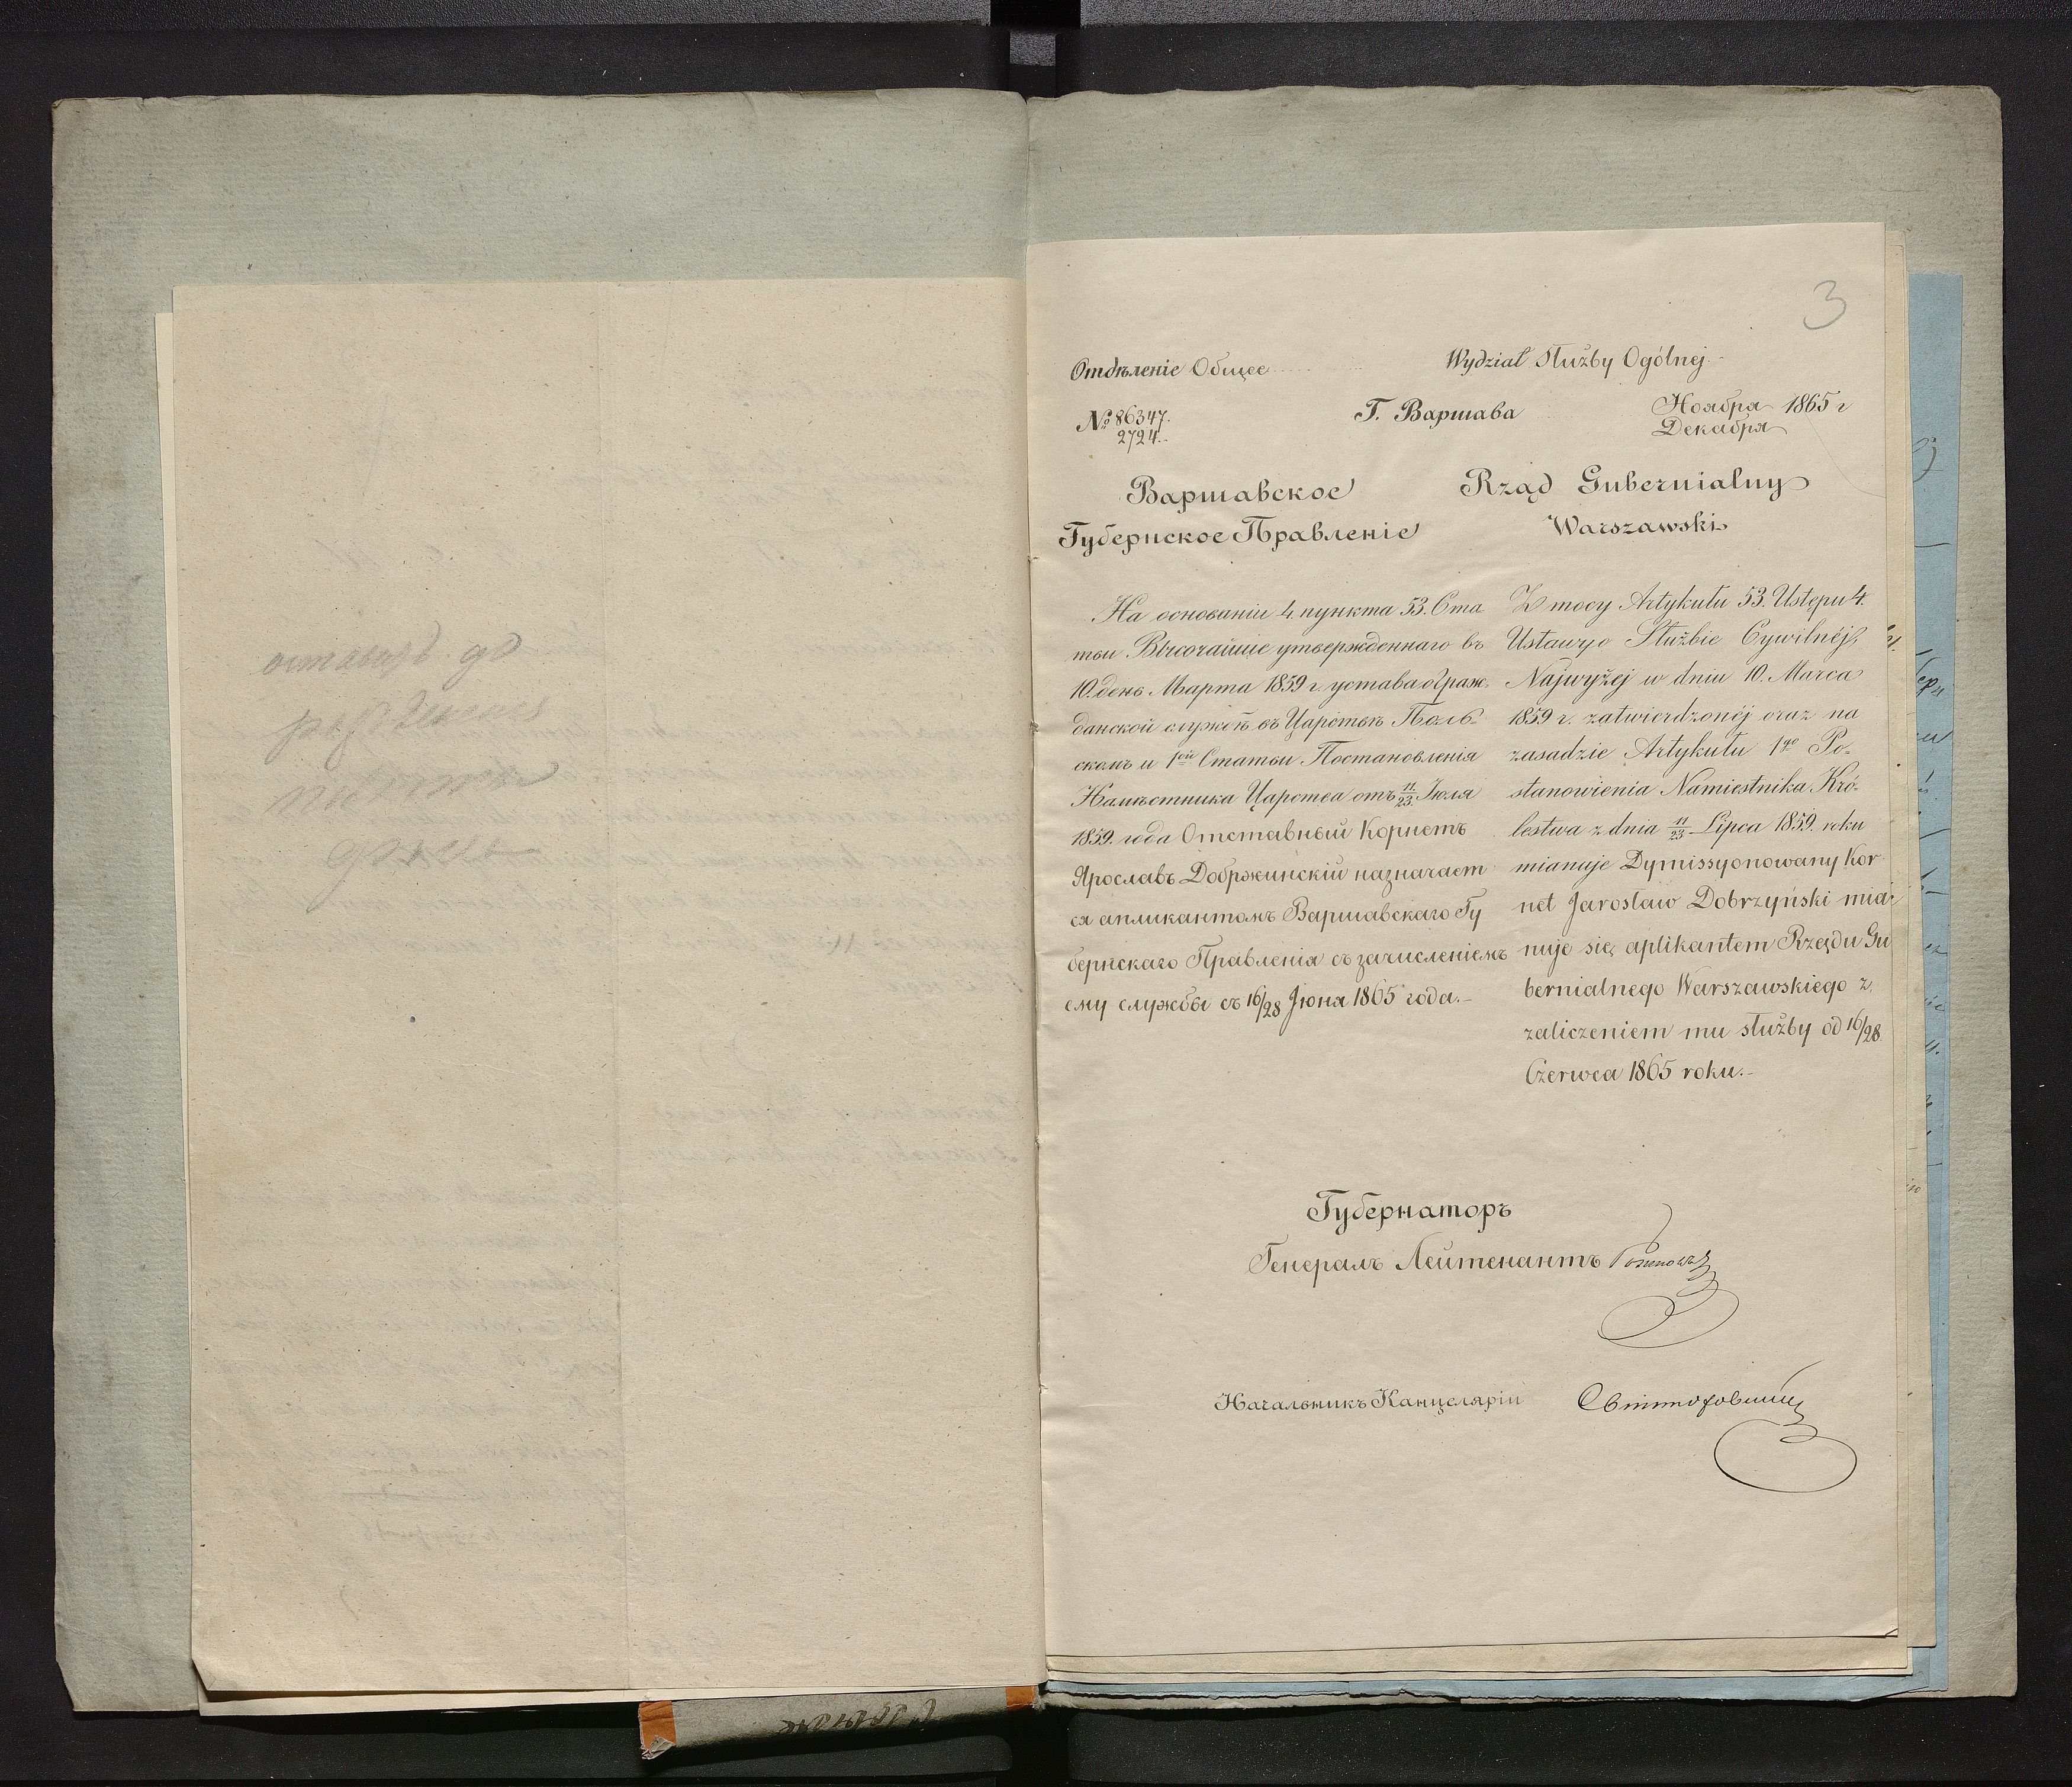 оставить до
3
Отдѣленіе Общее
Wydział Służby Ogólnej
№ 86347.
2724.
Г. Варшава
Ноября 1865 г
Декабря
Варшавское
Губернское Правленіе
На основаніи 4. пункта 53. Ста
тьи Высочайше утвержденнаго въ
10. день Марта 1859 г. устава о Граж-
данской службѣ въ Царствѣ Поль-
скомъ и 1ой Статьи Постановленія
Намѣстника Царства отъ 11/23 Іюля
1859. года Отставный Корнетъ
Ярославъ Добржинскій назначает
ся апликантомъ Варшавскаго Гу
бернскаго Правленія съ зачисленіемъ
ему службы съ 16/28 Іюня 1865 года.-
Rząd Gubernialny
Warszawski
Z mocy Artykułu 53. Ustępu 4.
Ustawy o Służbie Cywilnéj,
Najwyżej w dniu 10. Marca
1859 r. zatwierdzonéj oraz na
zasadzie Artykułu 1go Po-
stanowienia Namiestnika Kró-
lestwa z dnia 11/23 Lipca 1859. roku
mianuje Dymissyonowany Kor
net Jarosław Dobrzyński mia-
nuje się aplikantem Rzędu Gu
bernialnego Warszawskiego z
zaliczeniem mu służby od 16/28
Czerwca 1865 roku.-
Губернаторъ
Генералъ Лейтенантъ
Начальникъ Канцеляріи